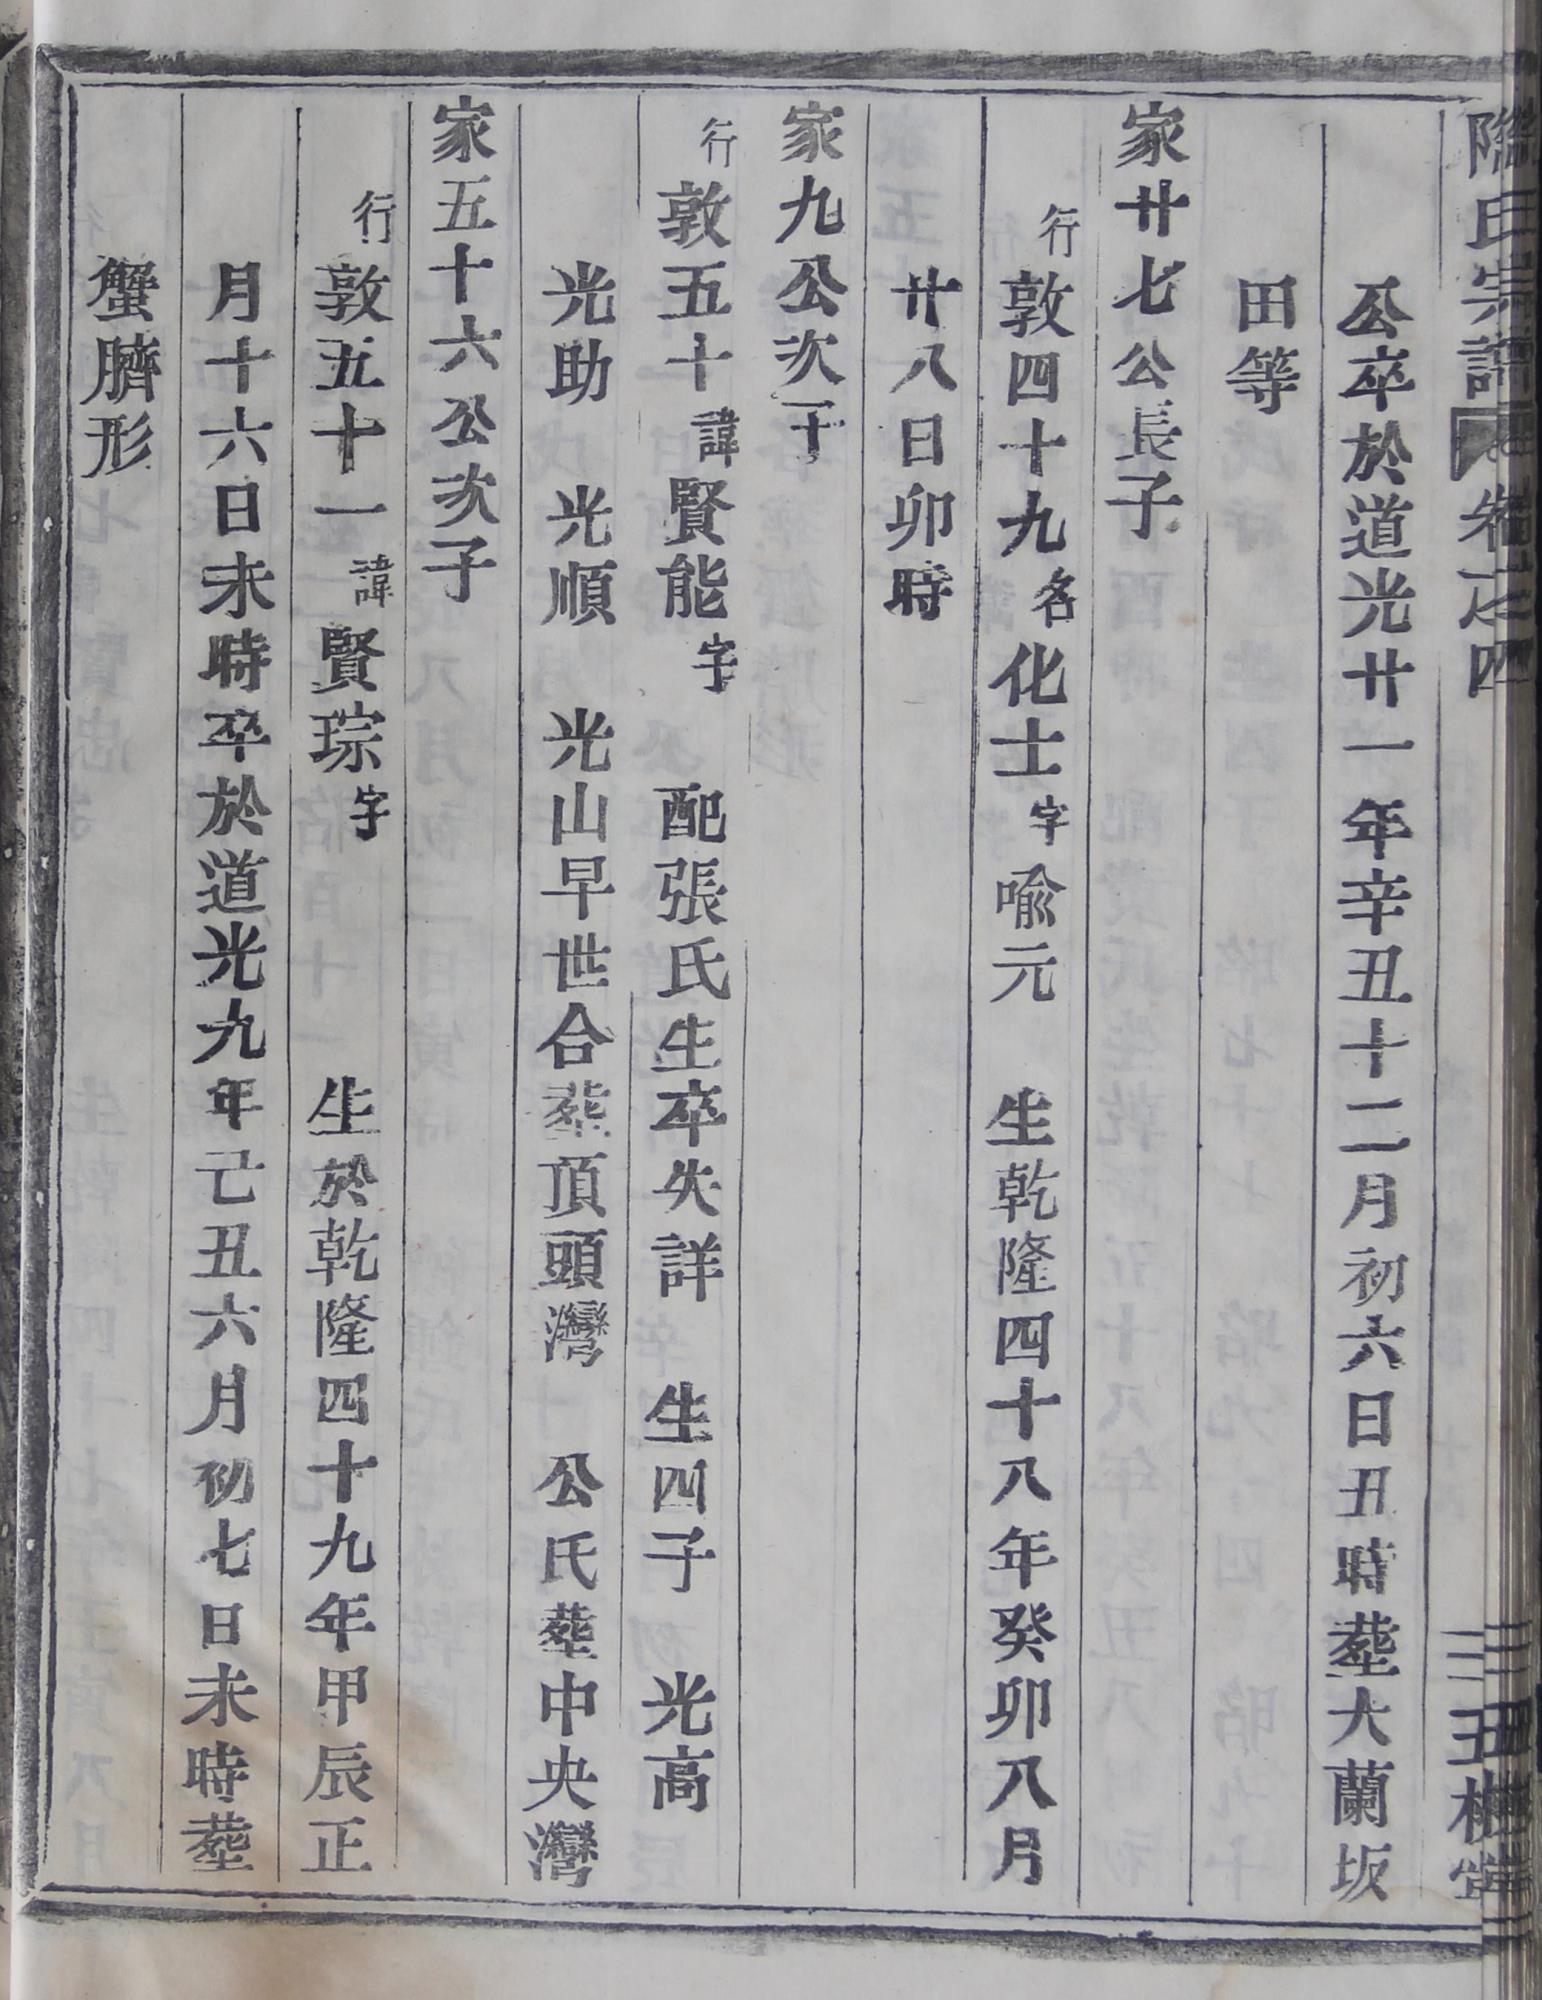 氏宗譜 卷之四
公卒於道光廿一年辛丑十二月初六日丑時塟大蘭坂
田等
家廿七公長子
行敦四十九名化士字喩元 生乾隆四十八年癸卯八月
廿八日卯時
家九公次子
行敦五十諱賢能字 配張氏生卒失詳 生四子 光高
光助 光順 光山早世合塟頂頭灣 公氏塟中央灣
家五十六公次子
行敦五十一諱賢琮字 生於乾隆四十九年甲辰正
月十六日未時卒於道光九年己丑六月初七日未時塟
蟹臍形